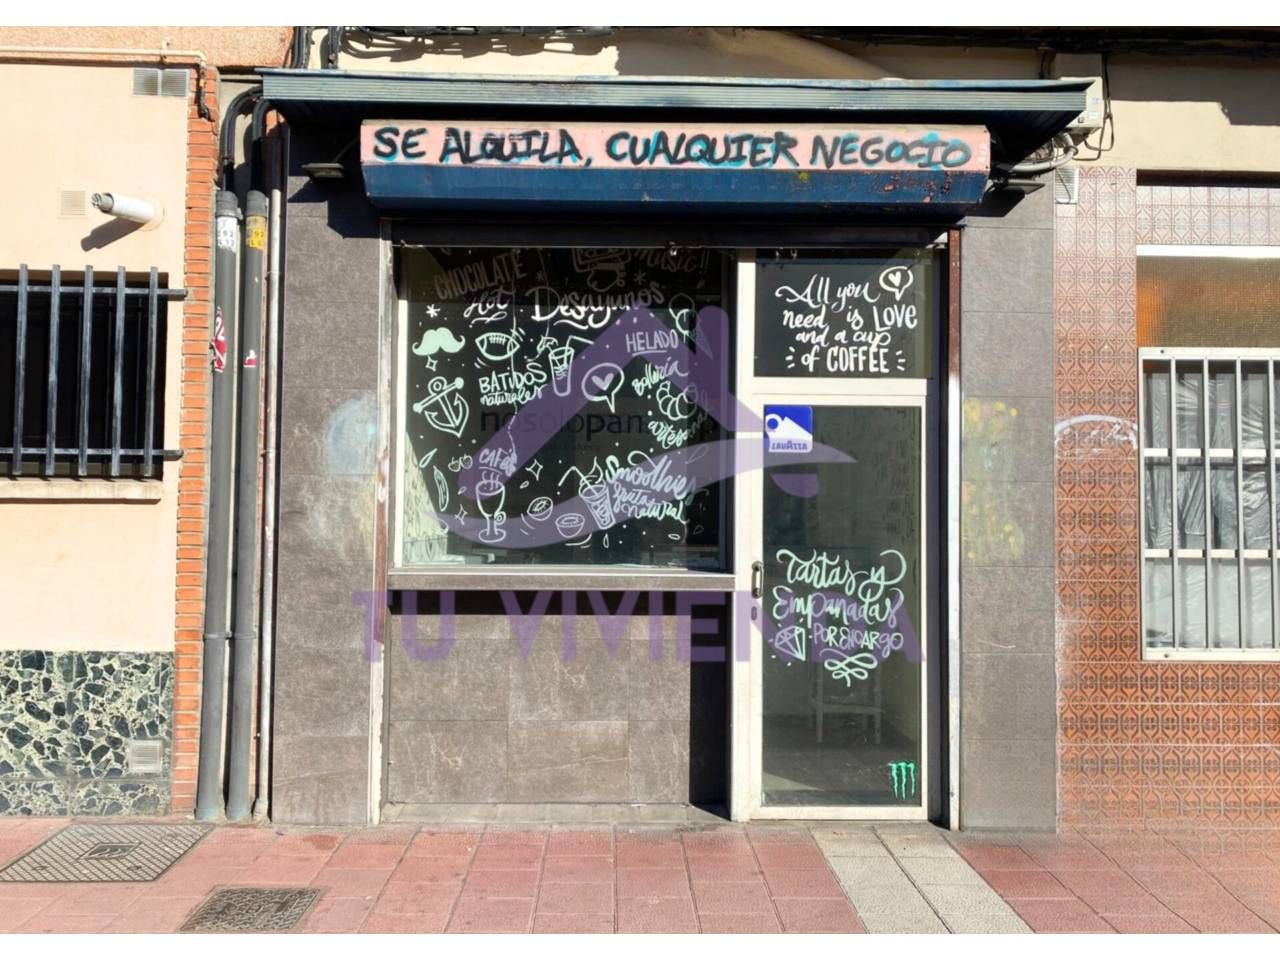 SE ALQUILA, CUALQUIER NEGOCIO
CHOCOLATE
Hot
Desayunos
music!!
HELADO
BATIDOS
naturales
Bollería
artesana
nosolopan
CAFÉS
Smoothies
fruta
natural
All you
need is LOVE
and a cup
of COFFEE
LAVAZZA
Tartas y
EMPANADAS
POR ENCARGO
TU VIVIENDA